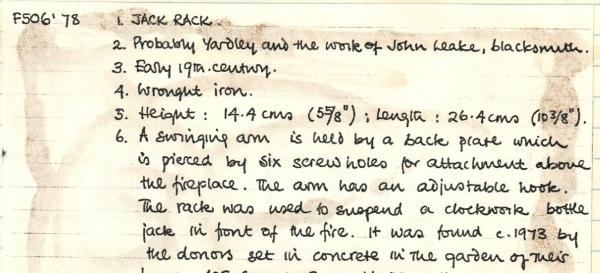 F506'78 1. JACK RACK.
2. Probably Yardley and the work of John Leake, blacksmith.
3. Early 19th century.
4. Wrought iron.
5. Height: 14.4 cms (5 5/8"); Length: 26.4 cms (10 3/8").
6. A swinging arm is held by a back plate which
is pierced by six screw holes for attachment above
the fireplace. The arm has an adjustable hook.
The rack was used to suspend a clockwork bottle
jack in front of the fire. It was found c.1973 by
the donors set in concrete in the garden of their